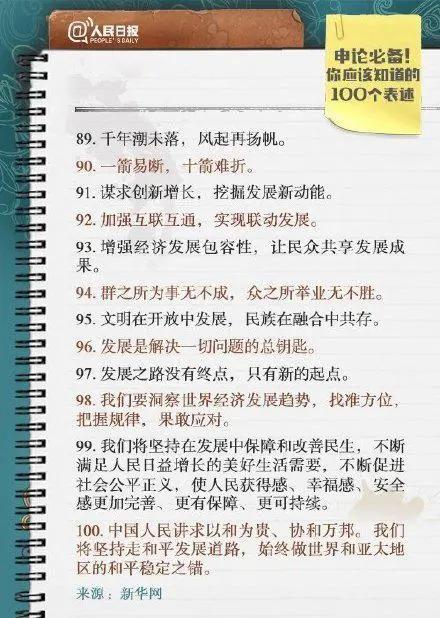 @人民日报
PEOPLE'S DAILY
申论必备!
你应该知道的
100个表述
89. 千年潮未落，风起再扬帆。
90. 一箭易断，十箭难折。
91. 谋求创新增长，挖掘发展新动能。
92. 加强互联互通，实现联动发展。
93. 增强经济发展包容性，让民众共享发展成
果。
94. 群之所为事无不成，众之所举业无不胜。
95. 文明在开放中发展，民族在融合中共存。
96. 发展是解决一切问题的总钥匙。
97. 发展之路没有终点，只有新的起点。
98. 我们要洞察世界经济发展趋势，找准方位，
把握规律，果敢应对。
99. 我们将坚持在发展中保障和改善民生，不断
满足人民日益增长的美好生活需要，不断促进
社会公平正义，使人民获得感、幸福感、安全
感更加完善、更有保障、更可持续。
100. 中国人民讲求以和为贵、协和万邦。我们
将坚持走和平发展道路，始终做世界和亚太地
区的和平稳定之锚。
来源：新华网